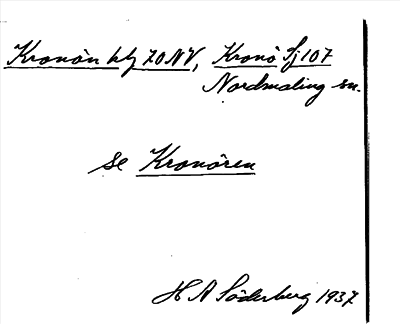 Kronön bl 70 NV, Kronö Sj 107
Nordmaling sn.
se Kronören
H A Söderberg 1937